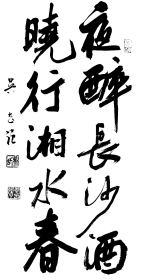 夜醉長沙酒
曉行湘水春